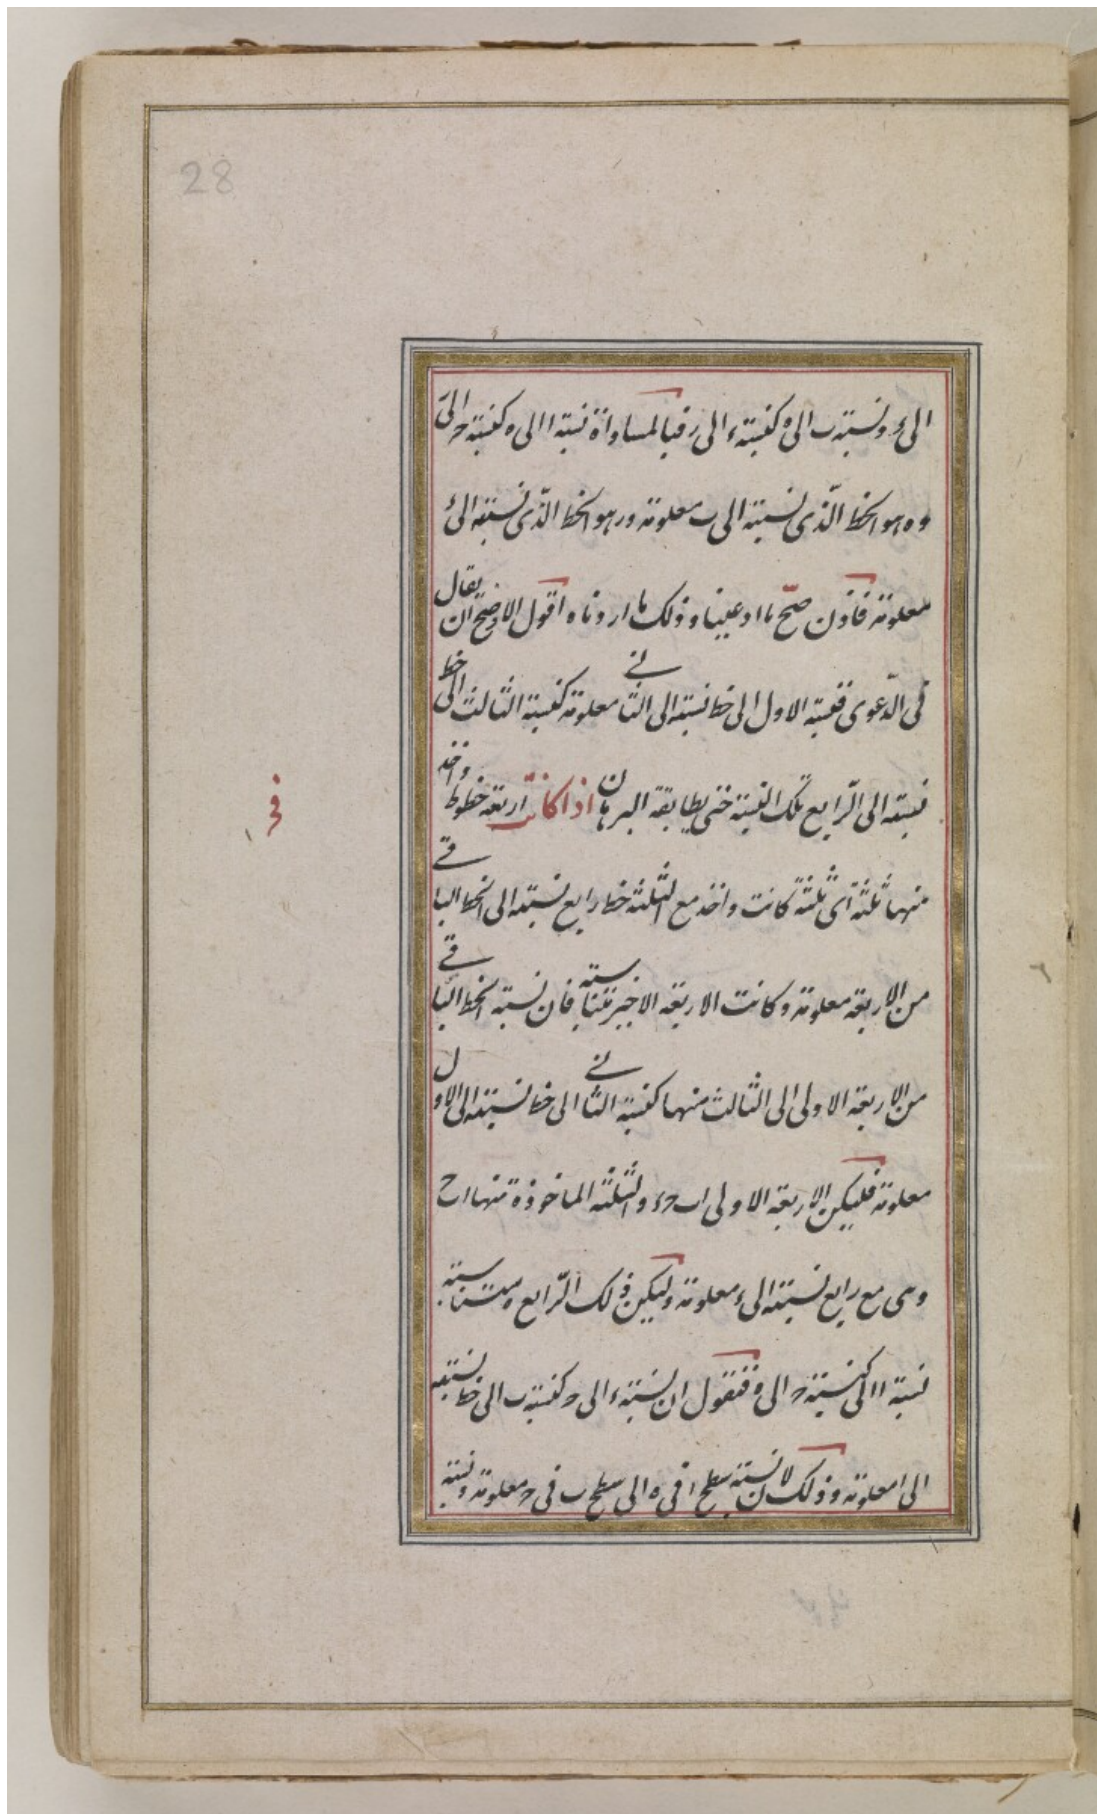 28
الى ء ونسبة ب الى ه كنسبة ء الى ر فبالمساواة نسبة ا الى ه كنسبة ح الى ر
و ه هو الخط الذى نسبته الى ب معلومة و ر هو الخط الذى نسبته الى ء
معلومة فاذن صح ما ادعينا وذلك ما اردناه اقول الاوضح ان يقال
فى الدعوى فنسبة الاول الى خط نسبته الى الثانى معلومة كنسبة الثالث الى خط
نسبته الى الرابع تلك النسبة حتى يطابقه البرهان اذا كانت اربعة خطوط واخذ
منها ثلثة اى ثلثة كانت واخذ مع الثلثة خط رابع نسبته الى الخط الباقى
من الاربعة معلومة وكانت الاربعة الاخيرة متناسبة فان نسبة الخط الباقى
من الاربعة الاولى الى الثالث منها كنسبة الثانى الى خط نسبته الى الاول
معلومة فليكن الاربعة الاولى ا ب ح ء والثلثة الماخوذة منها ا ب ح
وهى مع رابع نسبته الى ء معلومة وليكن ذلك الرابع ه متناسبة
نسبة ا الى ب كنسبة ح الى ه فنقول ان نسبة ء الى ح كنسبة ب الى خط نسبته
الى ا معلومة وذلك لان نسبة سطح ا فى ه الى سطح ب فى ح معلومة ونسبة